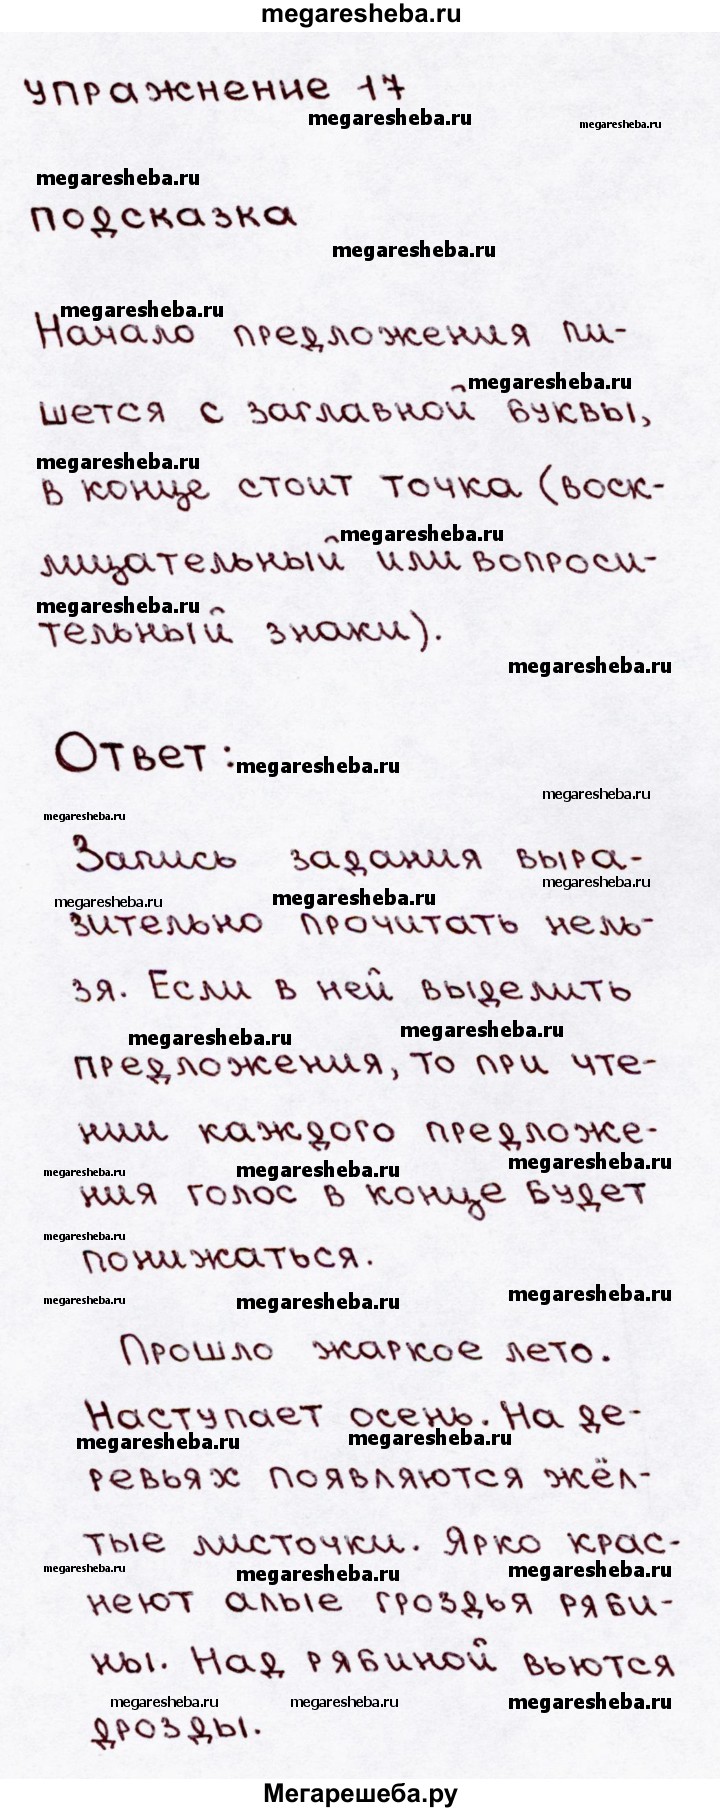 megaresheba.ru
упражнение 17
megaresheba.ru
megaresheba.ru
megaresheba.ru
подсказка
megaresheba.ru
megaresheba.ru
Начало предложения пи-
megaresheba.ru
шется с заглавной буквы,
megaresheba.ru
в конце стоит точка (воск-
megaresheba.ru
лицательный или вопроси-
megaresheba.ru
тельный знаки).
megaresheba.ru
Ответ:
megaresheba.ru
megaresheba.ru
megaresheba.ru
Запись задания выра-
megaresheba.ru
megaresheba.ru
megaresheba.ru
зительно прочитать нель-
зя. Если в ней выделить
megaresheba.ru
megaresheba.ru
предложения, то при чте-
нии каждого предложе-
megaresheba.ru
megaresheba.ru
megaresheba.ru
ния голос в конце будет
megaresheba.ru
понижаться.
megaresheba.ru
megaresheba.ru
megaresheba.ru
Прошло жаркое лето.
Наступает осень. На де-
megaresheba.ru
megaresheba.ru
ревьях появляются жёл-
тые листочки. Ярко крас-
megaresheba.ru
megaresheba.ru
megaresheba.ru
неют алые гроздья ряби-
ны. Над рябиной вьются
megaresheba.ru
megaresheba.ru
megaresheba.ru
дрозды.
Мегарешеба.ру